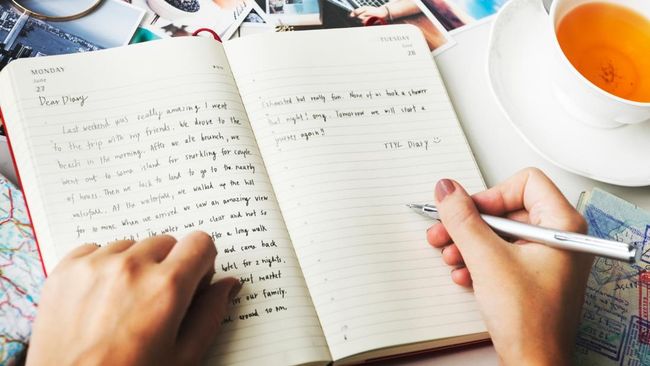 MONDAY
June
27
Dear Diary
Last weekend was really amazing. I went
to the trip with my friends. We drove to the
beach in the morning. After we ate brunch, we
went out to some island for snorkling for couple
of hours. Then we back to land to go to the nearby
waterfall. At the waterfall, we walked up the hill
for so mins when we arrived we saw an amazing view
The water was so clear and not so
after a long walk
and came back
hotel for 2 nights.
night market
for our family.
around 10 pm.
TUESDAY
June
28
Exhausted but really fun. None of us took a shower
last night! omg. Tomorrow we will start a
journey again!!
TTYL Diary